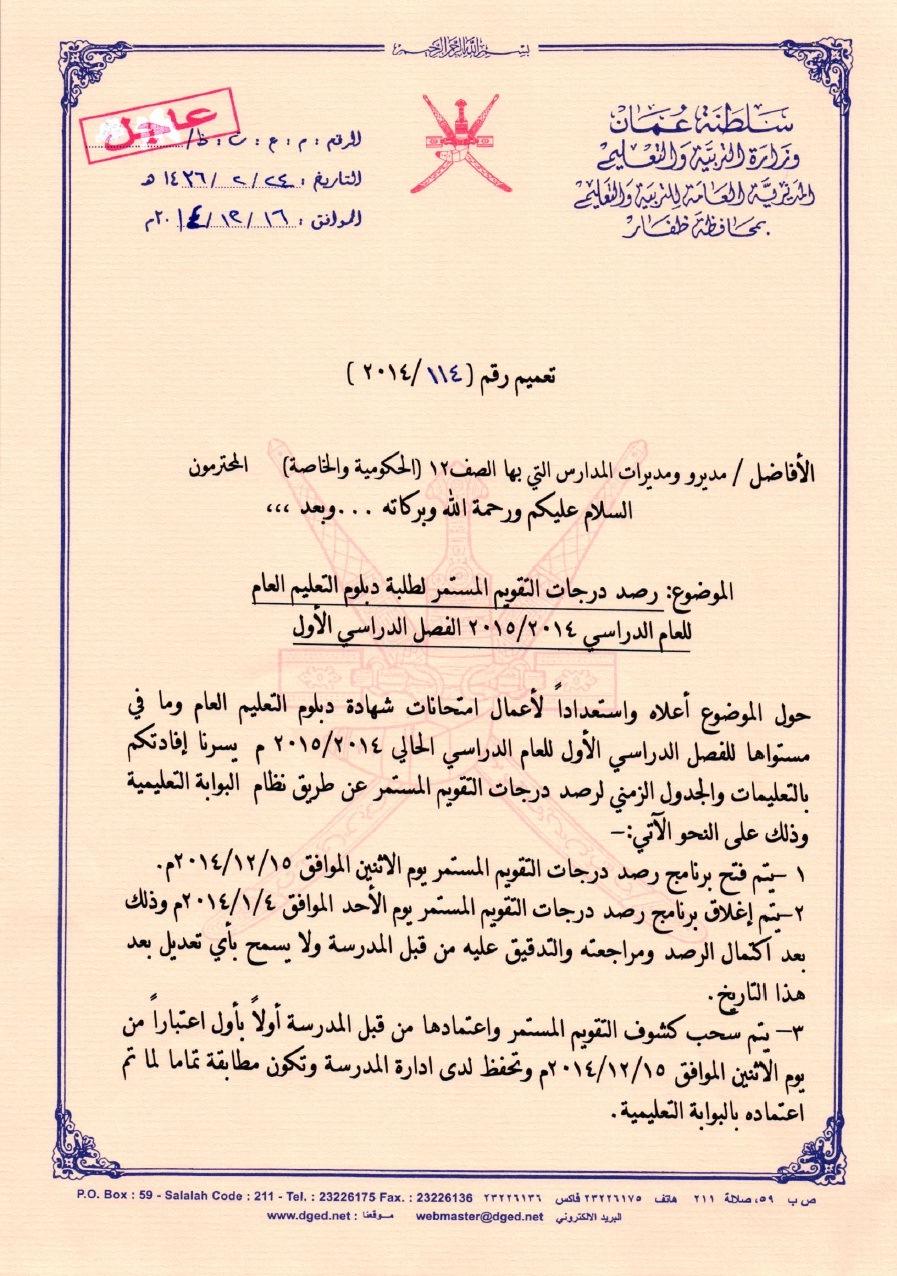 بسم الله الرحمن الرحيم
سلطنة عمان
وزارة التربية والتعليم
المديرية العامة للتربية والتعليم
بمحافظة ظفار
عاجل
الرقم : م ٠ ع ٠ ت ٠ ظ/
التاريخ : ٢٤ /٢ /١٤٣٦ هـ
الموافق : ١٦ /١٢ /٢٠١٤م
تعميم رقم (١١٤ /٢٠١٤ )
الأفاضل / مديرو ومديرات المدارس التي بها الصف١٢ (الحكومية والخاصة) المحترمون
السلام عليكم ورحمة الله وبركاته ...وبعد ،،،
الموضوع: رصد درجات التقويم المستمر لطلبة دبلوم التعليم العام
للعام الدراسي ٢٠١٥/٢٠١٤ الفصل الدراسي الأول
حول الموضوع أعلاه واستعداداً لأعمال امتحانات شهادة دبلوم التعليم العام وما في
مستواها للفصل الدراسي الأول للعام الدراسي الحالي ٢٠١٥/٢٠١٤ م يسرنا إفادتكم
بالتعليمات والجدول الزمني لرصد درجات التقويم المستمر عن طريق نظام البوابة التعليمية
وذلك على النحو الآتي:–
١ –يتم فتح برنامج رصد درجات التقويم المستمر يوم الاثنين الموافق ٢٠١٤/١٢/١٥م.
٢–يتم إغلاق برنامج رصد درجات التقويم المستمر يوم الأحد الموافق ٢٠١٤/١/٤م وذلك
بعد اكتمال الرصد ومراجعته والتدقيق عليه من قبل المدرسة ولا يسمح بأي تعديل بعد
هذا التاريخ.
٣– يتم سحب كشوف التقويم المستمر واعتمادها من قبل المدرسة أولاً بأول اعتباراً من
يوم الاثنين الموافق ٢٠١٤/١٢/١٥م وتحفظ لدى ادارة المدرسة وتكون مطابقة تماما لما تم
اعتماده بالبوابة التعليمية.
ص ب ٥٩، صلالة ٢١١ هاتف ٢٣٢٢٦١٧٥ فاكس ٢٣٢٢٦١٣٦ P.O. Box : 59 - Salalah Code : 211 - Tel. : 23226175 Fax. : 23226136
البريد الالكتروني webmaster@dged.net موقعنا : www.dged.net